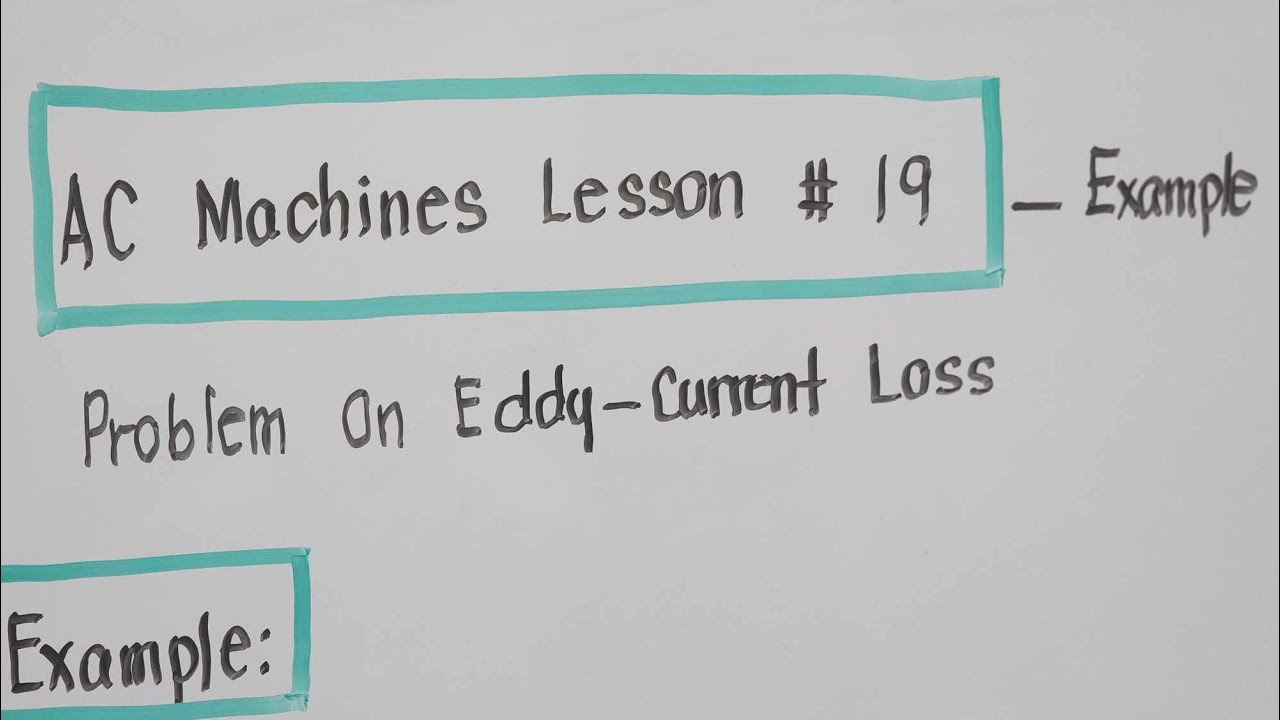 AC Machines Lesson # 19 – Example
Problem on Eddy-Current Loss
Example: